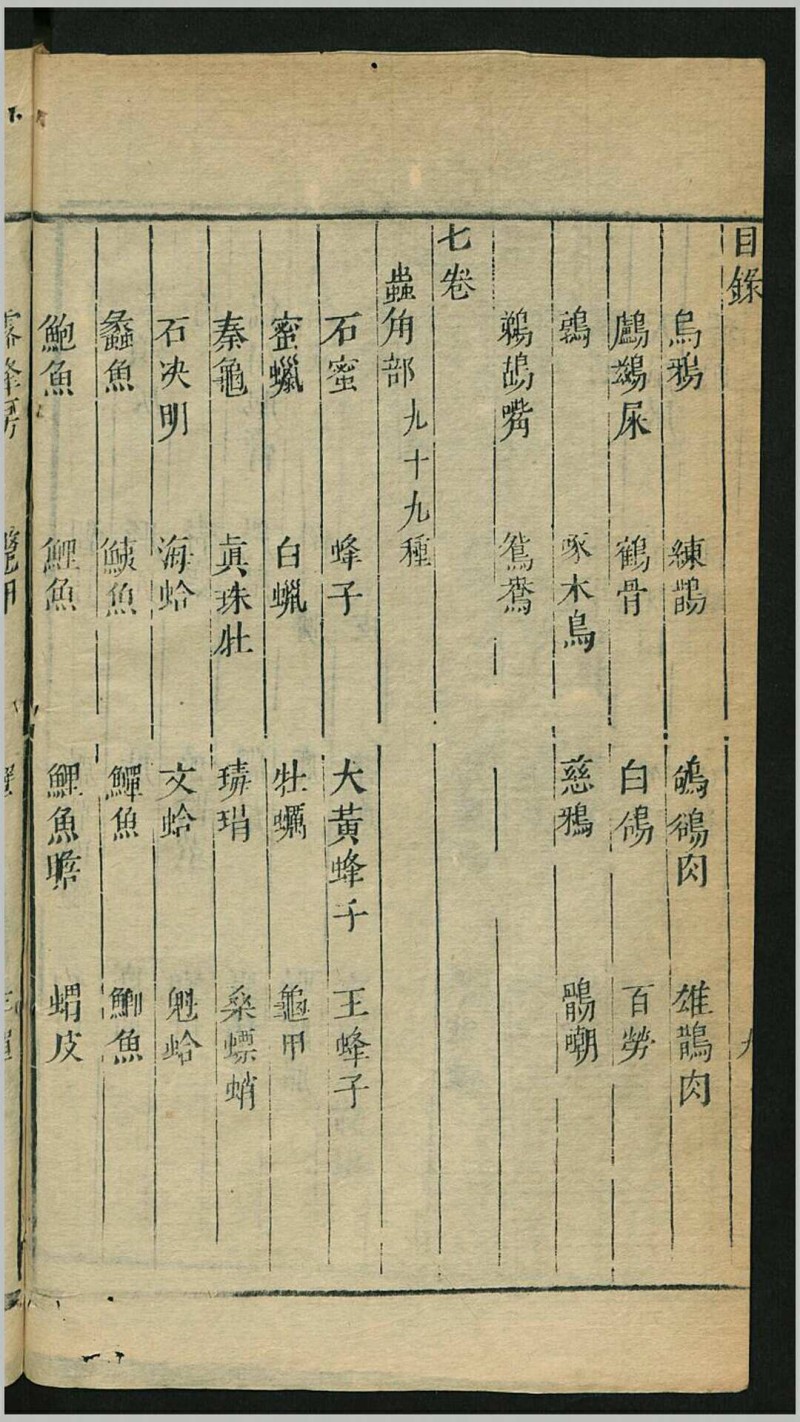 目錄
烏鴉 練鵲 鸲鵒肉 雄鵲肉
鸕鷀屎 鶴骨 白鴿 百勞
鶉 啄木鳥 慈鴉 鶻嘲
鵜鴣嘴 鴛鴦
七卷
蟲角部九十九種
石蜜 蜂子 大黃蜂子 王蜂子
蜜蠟 白蝋 牡蠣 龜甲
秦龜 眞珠牡 瑇瑁 桑螵蛸
石决明 海蛤 文蛤 魁蛤
蠡魚 鮧魚 鱓魚 鯽魚
鮑魚 鯉魚 鯉魚膽 蝟皮